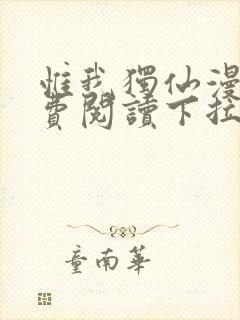 惟我獨仙漫
費閱讀下拉
童南華